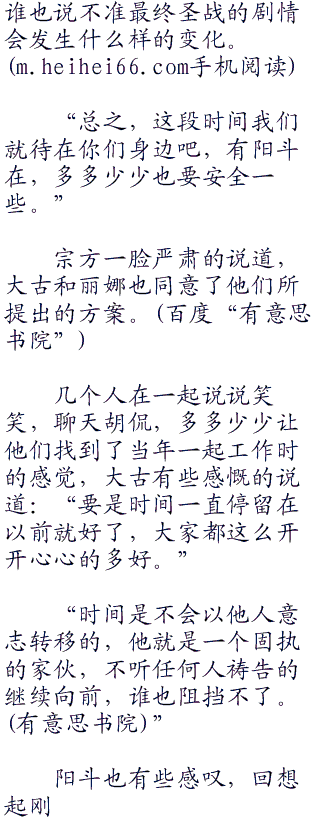 谁也说不准最终圣战的剧情
会发生什么样的变化。
(m.heihei66.com手机阅读)
“总之，这段时间我们
就待在你们身边吧，有阳斗
在，多多少少也要安全一
些。”
宗方一脸严肃的说道，
大古和丽娜也同意了他们所
提出的方案。(百度“有意思
书院”)
几个人在一起说说笑
笑，聊天胡侃，多多少少让
他们找到了当年一起工作时
的感觉，大古有些感慨的说
道：“要是时间一直停留在
以前就好了，大家都这么开
开心心的多好。”
“时间是不会以他人意
志转移的，他就是一个固执
的家伙，不听任何人祷告的
继续向前，谁也阻挡不了。
(有意思书院)”
阳斗也有些感叹，回想
起刚